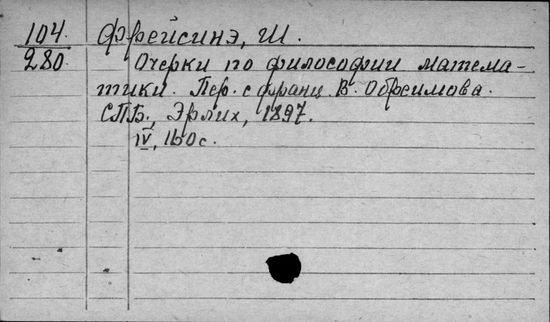 104. Фрейсинэ, Ш.
280. Очерки по философии матема-
тики. Пер. с франц. В. Обреимова.
СПБ., Эрлих, 1897.
IV, 160 с.